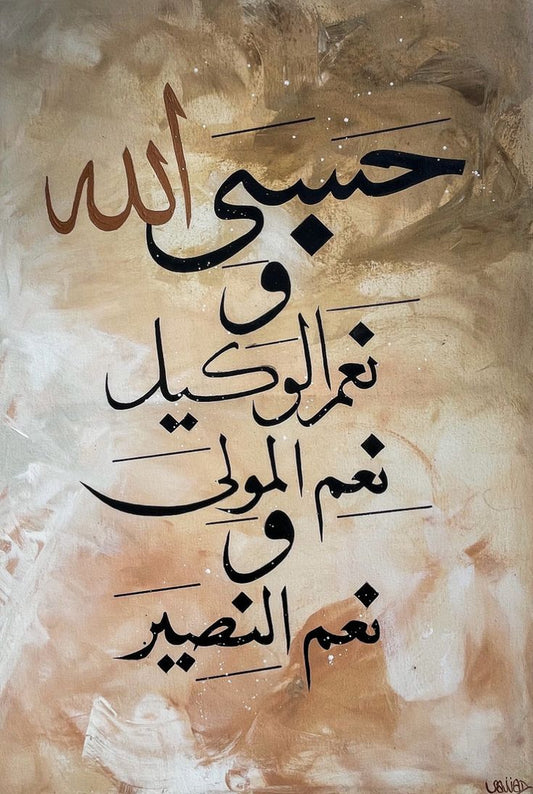 حسبي الله
و
نعم الوكيل
نعم المولى
و
نعم النصير